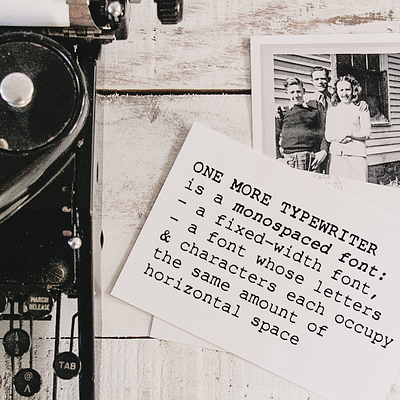 MARGIN
RELEASE
TAB
@
ONE MORE TYPEWRITER
is a monospaced font:
- a fixed-width font,
- a font whose letters
& characters each occupy
the same amount of
horizontal space